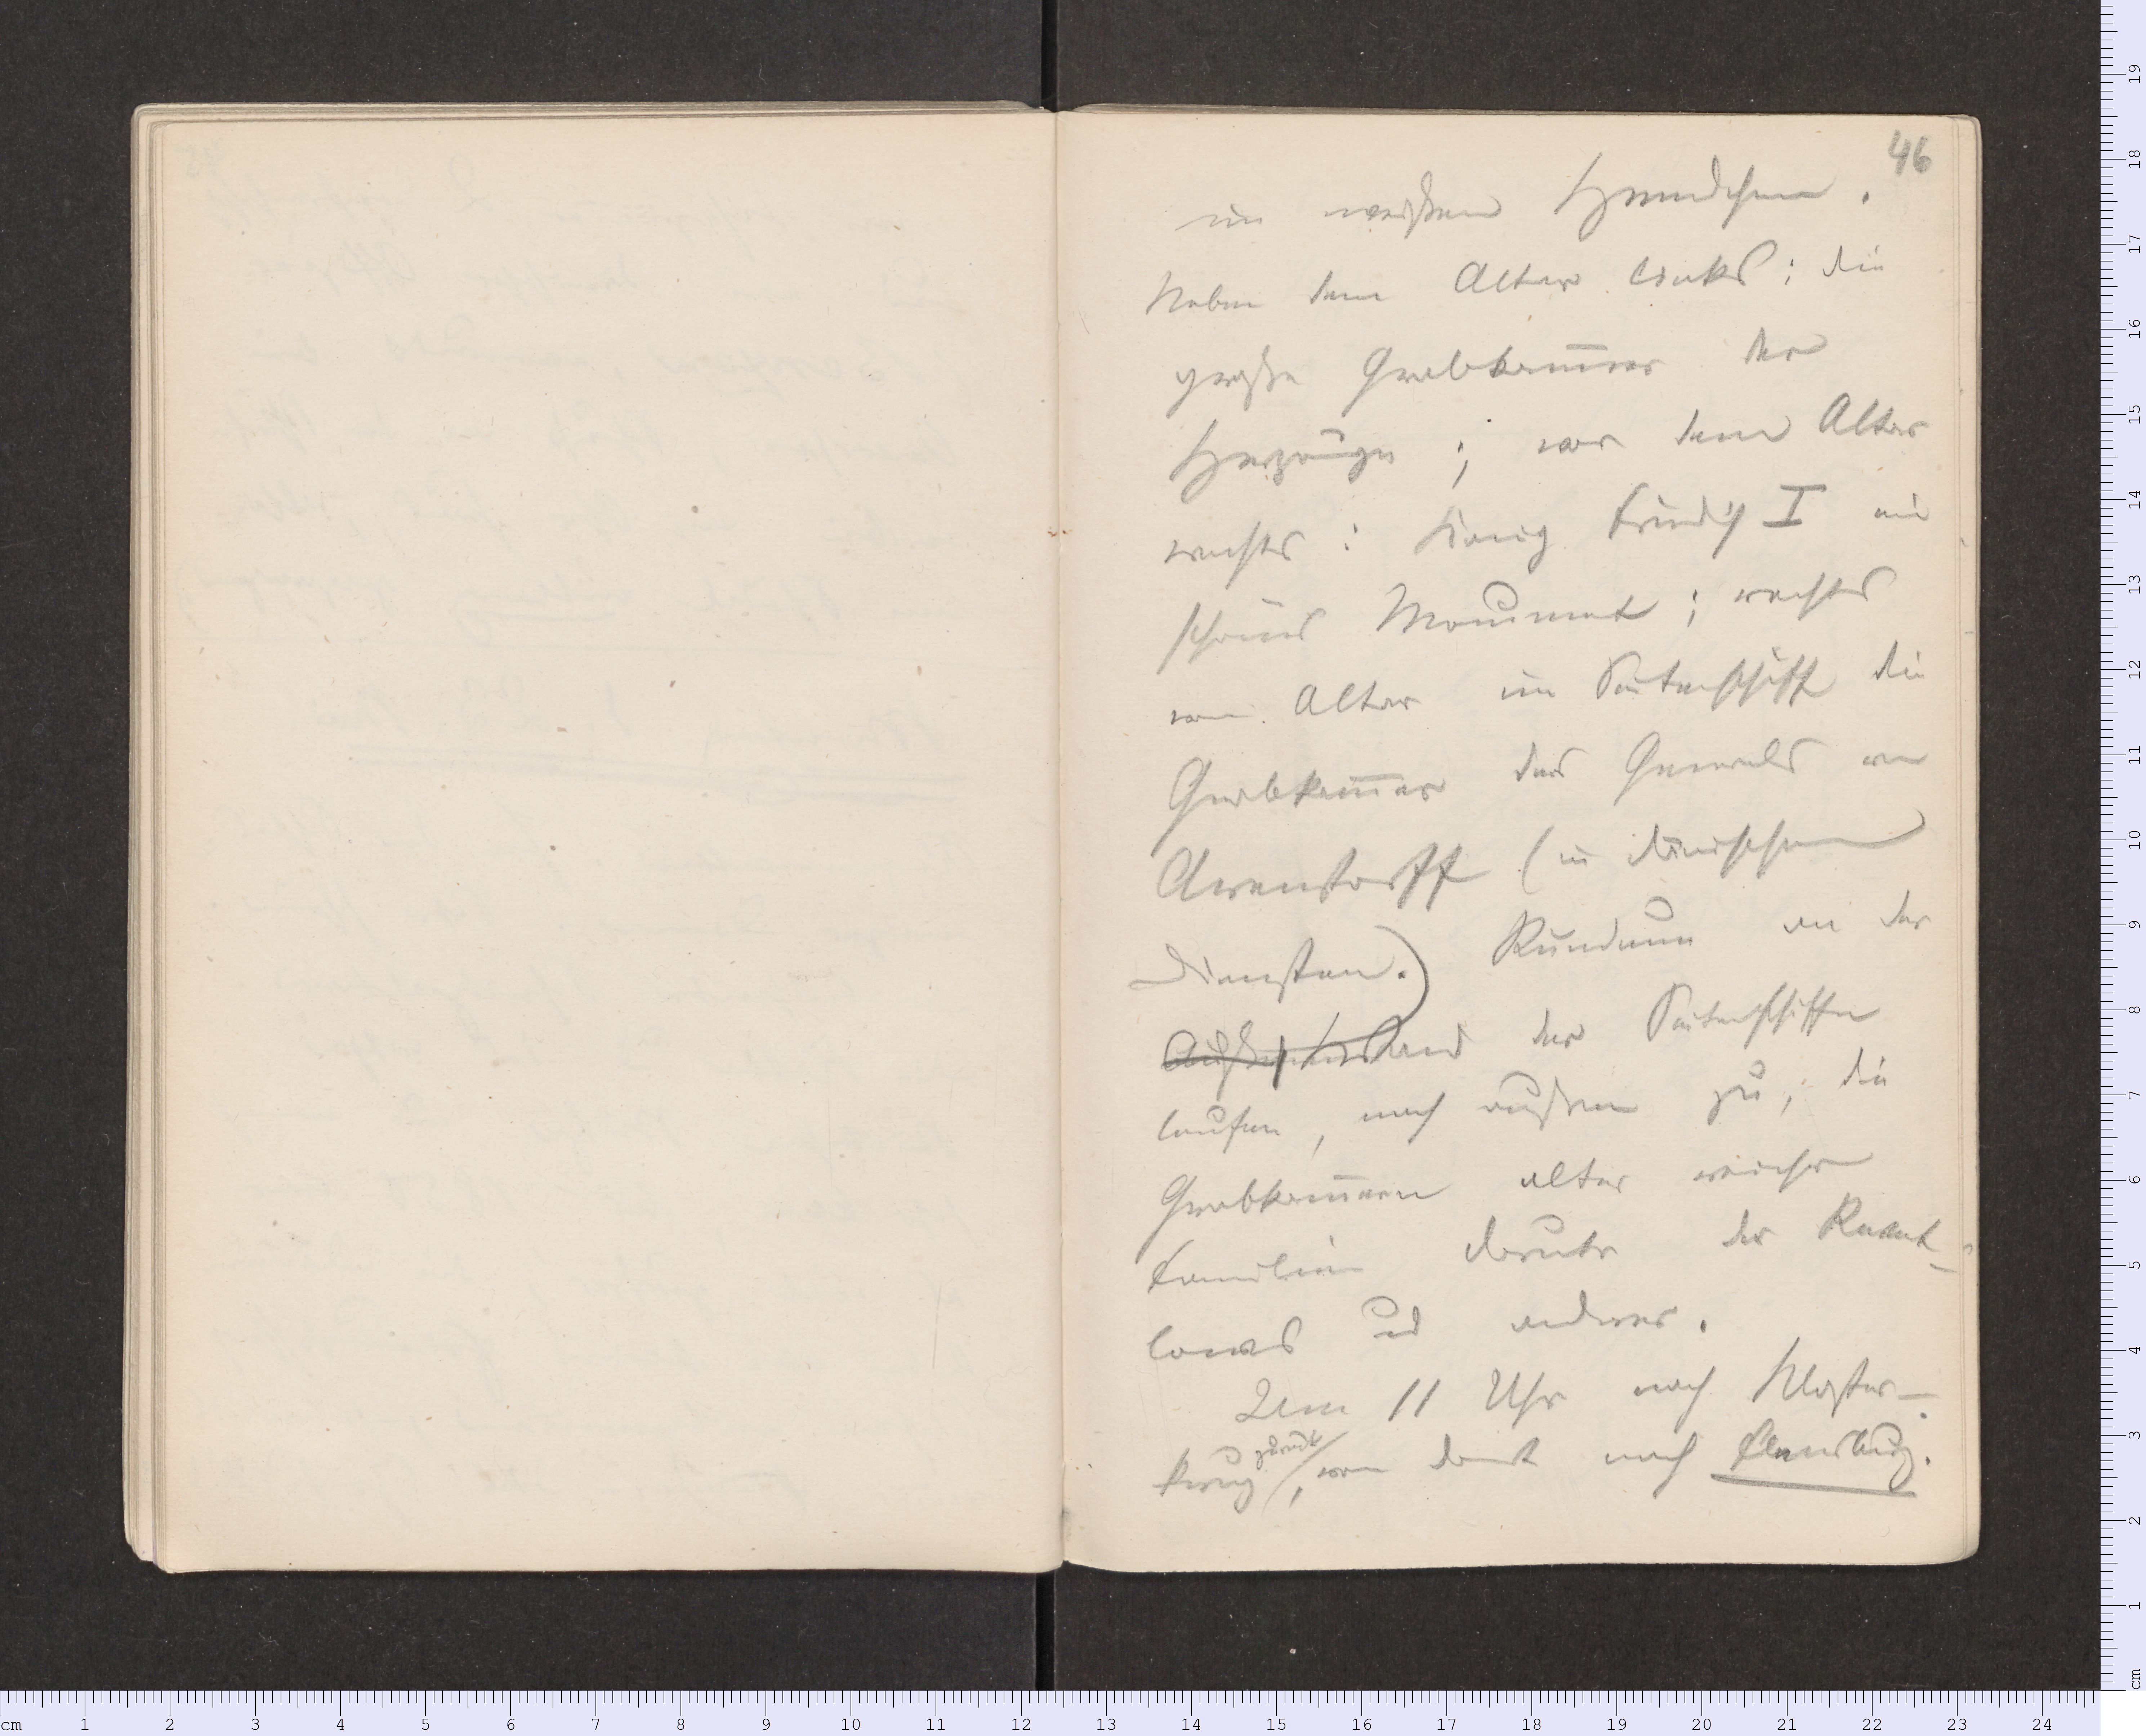 46
im weißen Hemdchen.
Neben dem Altar links: die
große Grabkam̅er der
Herzöge; vor dem Altar
rechts: König Friedrich I
schönes Monument; rechts
vom Altar im Seitenschiff die
Grabkam̅er des Generals von
Arenstorff (in dänischen
Diensten.) Rundum an der
der Seitenschiffe
laufen, nach außen zu, die
Grabkam̅ern alter reicher
Familien drunter der Rant-
zows und andrer.
Um 11 Uhr nach Kloster-
krug zurück, von dort nach Flensburg.